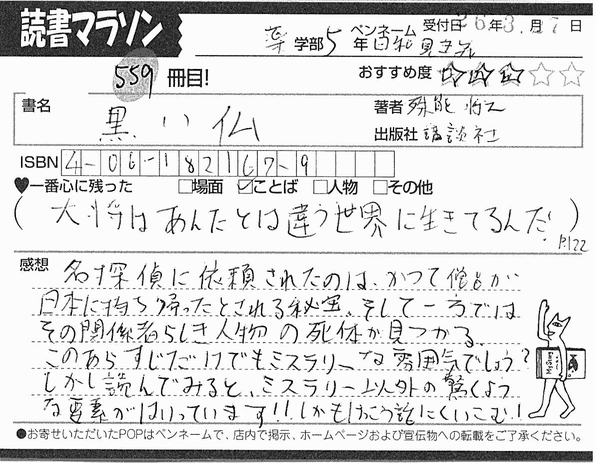 読書マラソン
受付日 26年3月7日
薬学部5年 ペンネーム
559冊目!
おすすめ度 ★★★☆☆
書名 黒い仏
著者 殊能将之
出版社 講談社
ISBN 4-06-182167-9
♥一番心に残った □場面 ☑ことば □人物 □その他
(大将はあんたとは違う世界に生きてるんだ。) P.122
感想 名探偵に依頼されたのは、かつて僧が
日本に持ち帰ったとされる秘宝。そして一方では
その関係者らしき人物の死体が見つかる。
このあらすじだけでもミステリーな雰囲気でしょう?
しかし読んでみると、ミステリー以外の驚くよう
な要素がはいっています!!しかもけっこう話にくいこむ!
●お寄せいただいたPOPはペンネームで、店内で掲示、ホームページおよび宣伝物への転載をご了承ください。